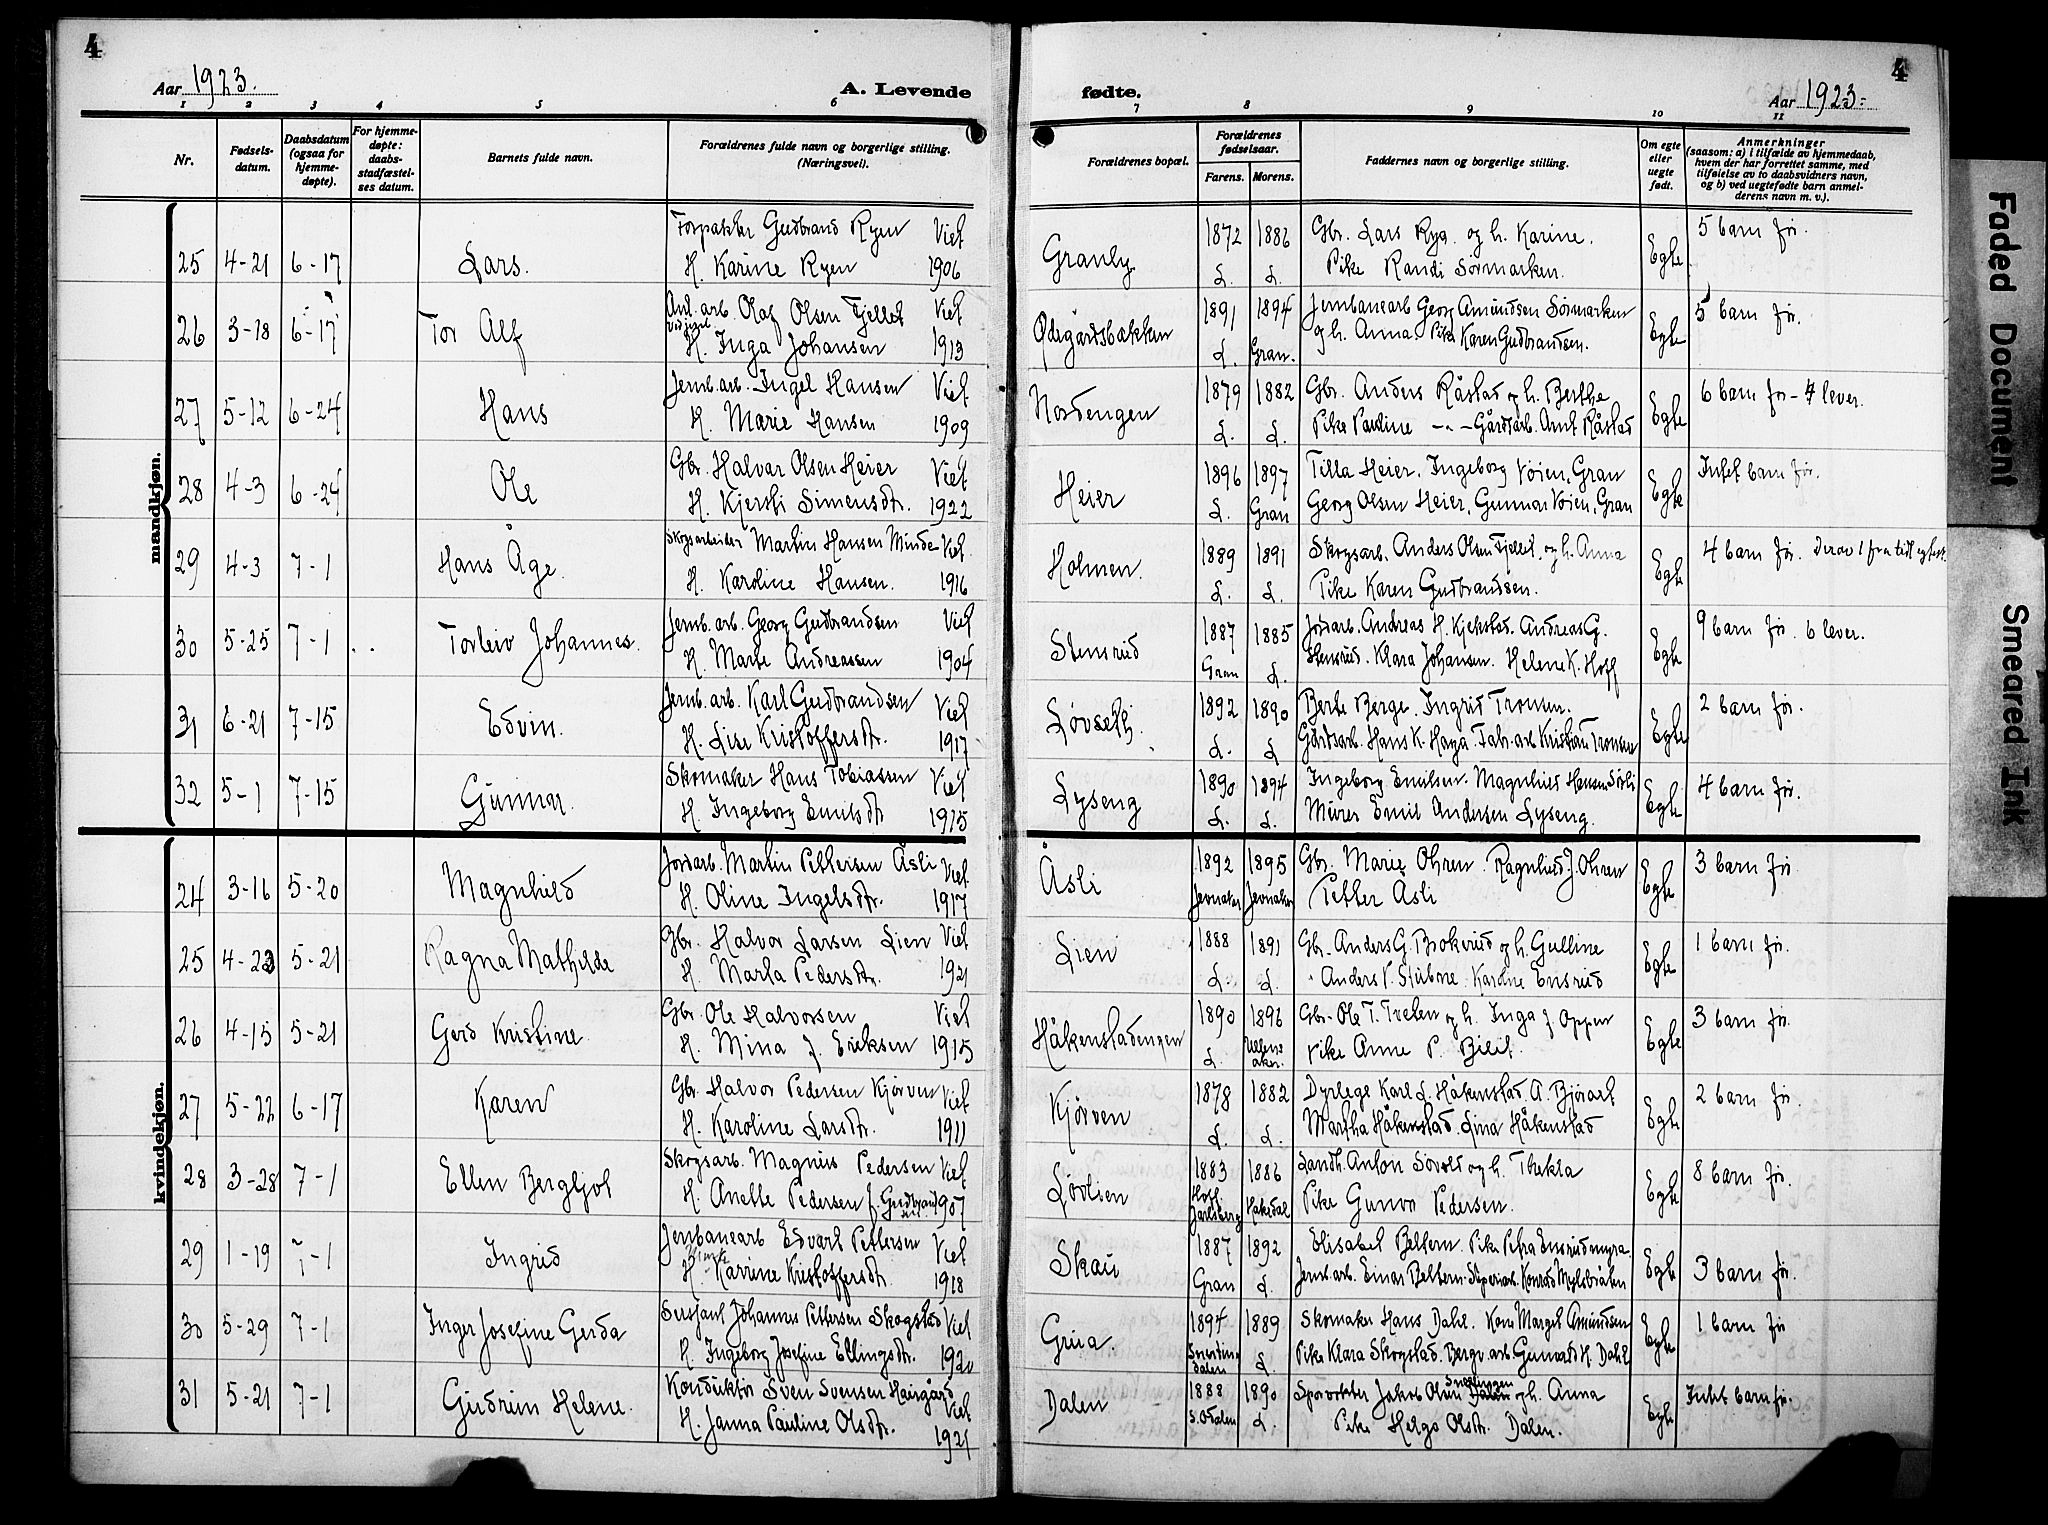 4
Aar 1923.
A. Levende
1 2 3 4 5 6
Nr.
Fødsels-
datum.
Daabsdatum
(ogsaa for
hjemme-
døpte).
For hjemme-
døpte:
daabs-
stadfæstel-
ses datum.
Barnets fulde navn.
Forældrenes fulde navn og borgerlige stilling.
(Næringsvei).
mandkjøn.
25 4-21 6-17 Lars. Forpakter Gudbrand Ryen Viet
H. Karine Ryen 1906
26 3-18 6-17 Tor Alf Anl. arb. Olaf Olsen Fjellet Viet
H. Inga Johansen 1913
27 5-12 6-24 Hans Jernb.arb. Ingel Hansen Viet
H. Marie Hansen 1909
28 4-3 6-24 Ole Gbr. Halvar Olsen Heier Viet
H. Kjersti Simensdtr. 1922
29 4-3 7-1 Hans Åge. Skogsarbeider Martin Hansen Minde Viet.
H. Karoline Hansen. 1916
30 5-25 7-1 .. Torleiv Johannes. Jernb. arb. Georg Gudbrandsen Viet
H. Marte Andreassen 1904
31 6-21 7-15 Edvin. Jernb. arb. Karl Gudbrandsen Viet
H. Lise Kristoffersdtr. 1917
32 5-1 7-15 Gunnar. Skomaker Hans Tobiassen Viet
H. Ingeborg Emilsdtr 1915
kvindekjøn.
24 3-16 5-20 Magnhild Jordarb. Martin Pettersen Åsli Viet
H. Oline Ingelsdtr. 1917
25 4-22 5-21 Ragna Mathilde Gbr. Halvor Larsen Lien Viet
H. Marta Pedersdtr. 1921
26 4-15 5-21 Gerd Kristine. Gbr. Ole Halvorsen Viet
H. Mina f. Eriksen 1915
27 5-22 6-17 Karen Gbr. Halvor Pedersen Kjørven Viet
H. Karoline Larsdtr. 1911
28 3-28 7-1 Ellen Bergljot Skogsarb. Magnus Pedersen Viet
H. Anette Pedersen f. Gudbrandsen 1907
29 1-19 7-1 Ingrid Jernbanearb Edvart Pettersen Viet
H. Karrine Kristoffersdtr. 1918
30 5-29 7-1 Inger Josefine Gerda Sersjant Johannes Pettersen Skogstad Viet
H. Ingeborg Josefine Ellingsdtr. 1920
31 5-21 7-1 Gudrun Helene. Konduktør Sven Svensen Haugård Viet
H. Janna Pauline Olsdtr. 1921
4
fødte.
Aar 1923.
7 8 9 10 11
Forældrenes bopæl.
Forældrenes
fødselsaar.
Farens. Morens.
Faddernes navn og borgerlige stilling.
Om egte
eller
uegte
født.
Anmerkninger
(saasom: a) i tilfælde av hjemmedaab,
hvem der har forrettet samme, med
tilføielse av to daabsvidners navn,
og b) ved uegtefødte barn anmel-
derens navn m. v.).
Granly 1872 1886 Gbr. Lars Rya. og h. Karine. Egte 5 barn før.
L. L. Pike Randi Sørmarken.
Ødegårdsbakken 1891 1894 Jernbanearb Georg Amundsen Sørmarken Egte 5 barn før.
L. Gran. og h. Anna. Pike Karen Gudbrandsen.
Nordengen 1879 1882 Gbr. Anders Råstad og h. Berthe Egte 6 barn før - 4 lever.
L. L. Pike Pauline -"- Gårdsarb. Arnt Råstad
Heier 1896 1897 Tilla Heier, Ingeborg Voien, Gran Egte Intet barn før.
L. Gran Georg Olsen Heier, Gunnar Voien, Gran
Holmen. 1889 1891 Skogsarb. Anders Olsen Fjellet, og h. Anna Egte 4 barn før. Derav 1 fra tidl
L. L. Pike Karen Gudbrandsen.
Stensrud 1887 1885 Jordarb. Andreas H. Kjekstad. Andreas G. Egte 9 barn før. 6 lever.
Gran L. Stensrud. Klara Johansen. Helene K. Hoff
Løvseth. 1892 1890 Berte Berge. Ingrid Tronsen. Egte 2 barn før.
L. L Gårdsarb. Hans K. Haga. Fabr. arb Kristian Tronsen
Lyseng 1890 1894 Ingeborg Emilsen. Magnhild Hansen Sørli Egte 4 barn før.
L. L. Murer Emil Andersen Lyseng.
Åsli 1892 1895 Gbr. Marie Ohren. Ragnhild J. Ohren Egte 3 barn før
Jevnaker Jevnaker Petter Åsli
Lien 1888 1891 Gbr. Anders G. Brokerud og h. Gulline Egte 1 barn før.
L. L. Anders P. Stubne. Karine Ensrud
Håkenstadengen 1890 1896 Gbr. Ole T. Tveten og h. Inga f. Oppen Egte 3 barn før.
L. Ullensaker. Pike Anne P. Bilit.
Kjørven 1878 1882 Dyrlege Karl L. Håkenstad. A. Bjørart Egte 2 barn før.
L. L. Martha Håkenstad. Lina Håkenstad
Lødlien 1883 1886 Landh. Anton Søvold og h. Thekla Egte 8 barn før.
Hoff Jarlsberg Hakedal Pike Gunvor Pedersen.
Skau 1887 1892 Elisabet Beltern. Pike Petra Ensrudmyra Egte 3 barn før.
Gran L. Jernb.arb. Einar Beltern. Konrad Myhrbråten
Grua. 1894 1889 Skomaker Hans Dahl. Kone Margit Amundsen Egte 1 barn før
L. Pike Klara Skogstad. Bergv.arb. Gunvald H. Dahl
Dalen 1888 1890 Sporvokter Jakob Olsen Snellingen og h. Anna Egte Intet barn før.
S. Odalen L. Pike Helga Olsdtr. Dalen.
Faded Document
Smeared Ink